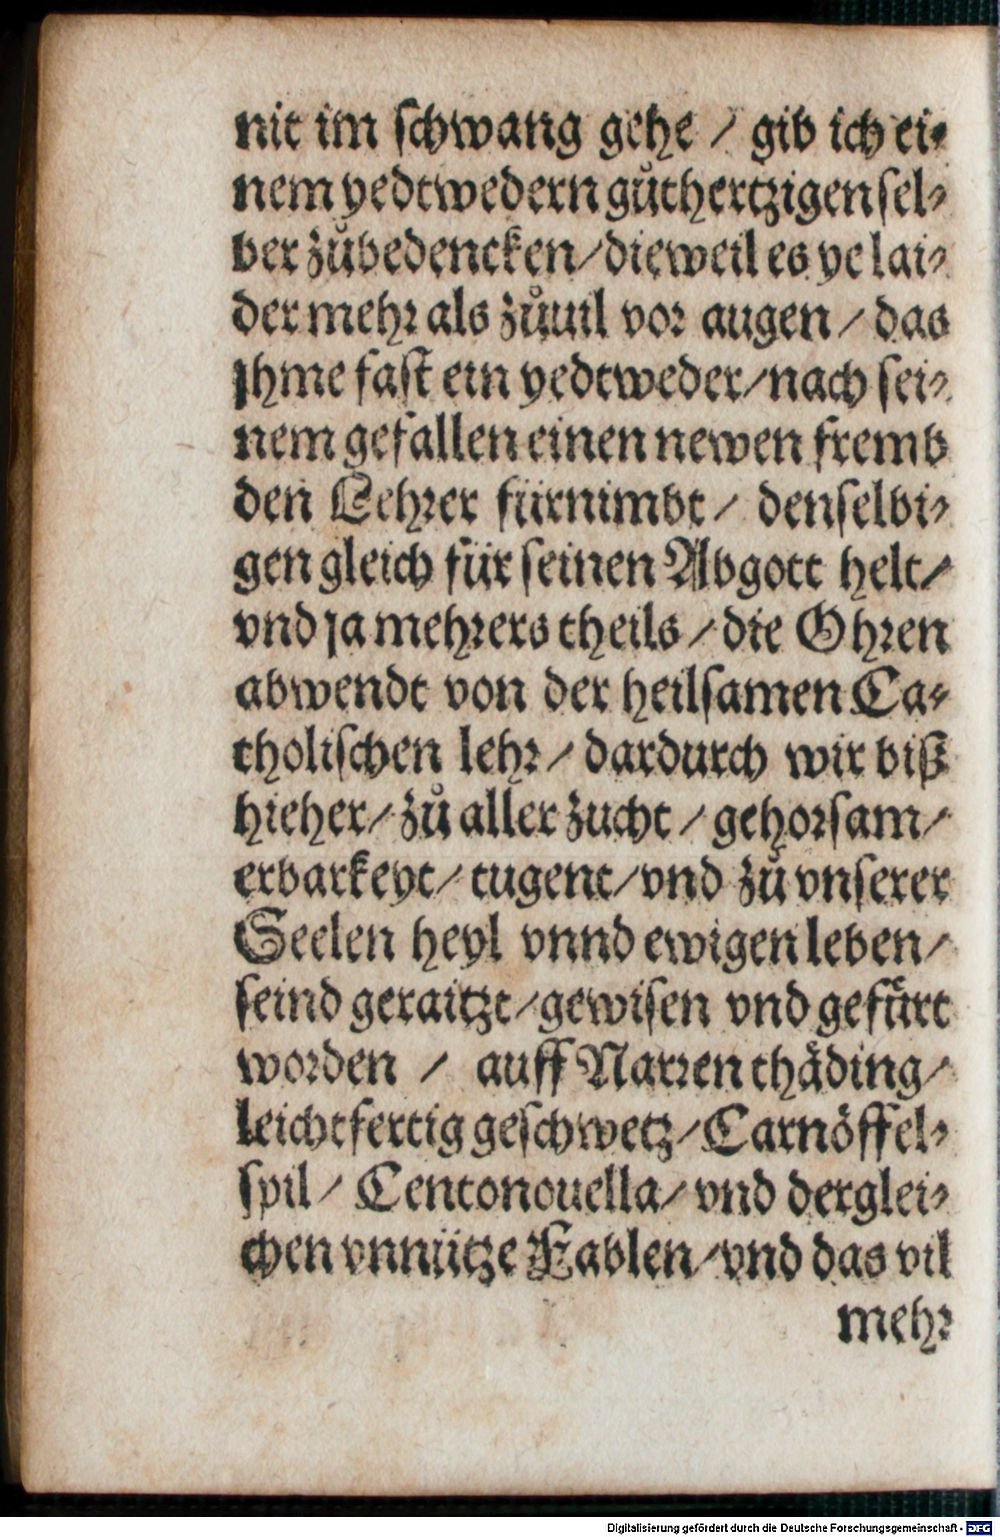 nit im schwang gehe / gib ich ei⸗
nem yedtwedern gůthertzigen sel⸗
ber zůbedencken / dieweil es ye lai⸗
der mehr als zůuil vor augen / das
jhme fast ein yedtweder / nach sei⸗
nem gefallen einen newen fremb
den Lehrer fürnimbt / denselbi⸗
gen gleich für seinen Abgott helt /
vnd ja mehrers theils / die Ohren
abwendt von der heilsamen Ca⸗
tholischen lehr / dardurch wir biß
hieher / zů aller zucht / gehorsam /
erbarkeyt / tugent / vnd zů vnserer
Seelen heyl vnnd ewigen leben /
seind geraitzt / gewisen vnd gefürt
worden / auff Narren thäding /
leichtfertig geschwetz / Carnöffel⸗
spil / Centonouella / vnd derglei⸗
chen vnnütze Fablen / vnd das vil
mehr
Digitalisierung gefördert durch die Deutsche Forschungsgemeinschaft - DFG